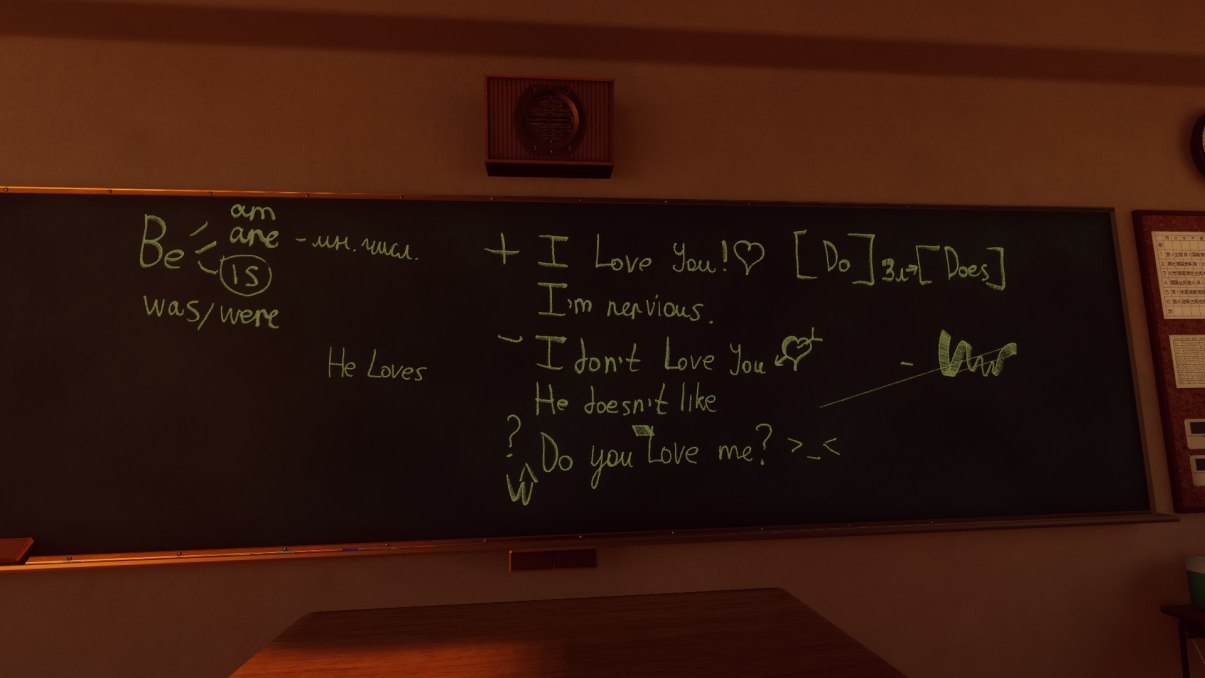 Be
am
are - мн. числ.
is
was/were
He Loves
+ I Love You!♡ [Do] 3л→[Does]
I'm nervious.
- I don't Love You
He doesn't like
? Do you Love me? >_<
W